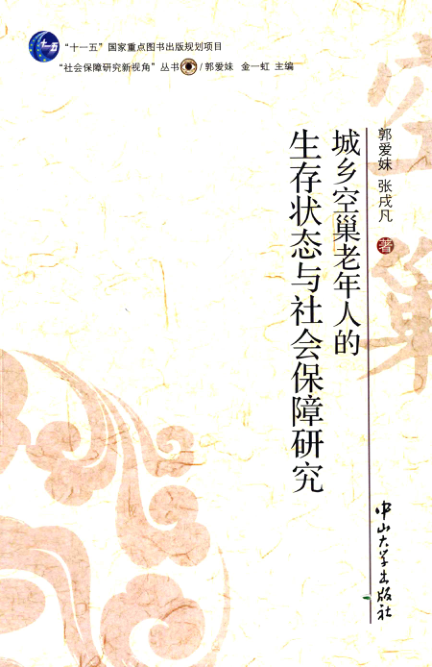 十一五
"十一五"国家重点图书出版规划项目
"社会保障研究新视角"丛书 / 郭爱妹 金一虹 主编
空巢
郭爱妹 张戌凡 著
城乡空巢老年人的
生存状态与社会保障研究
中山大学出版社